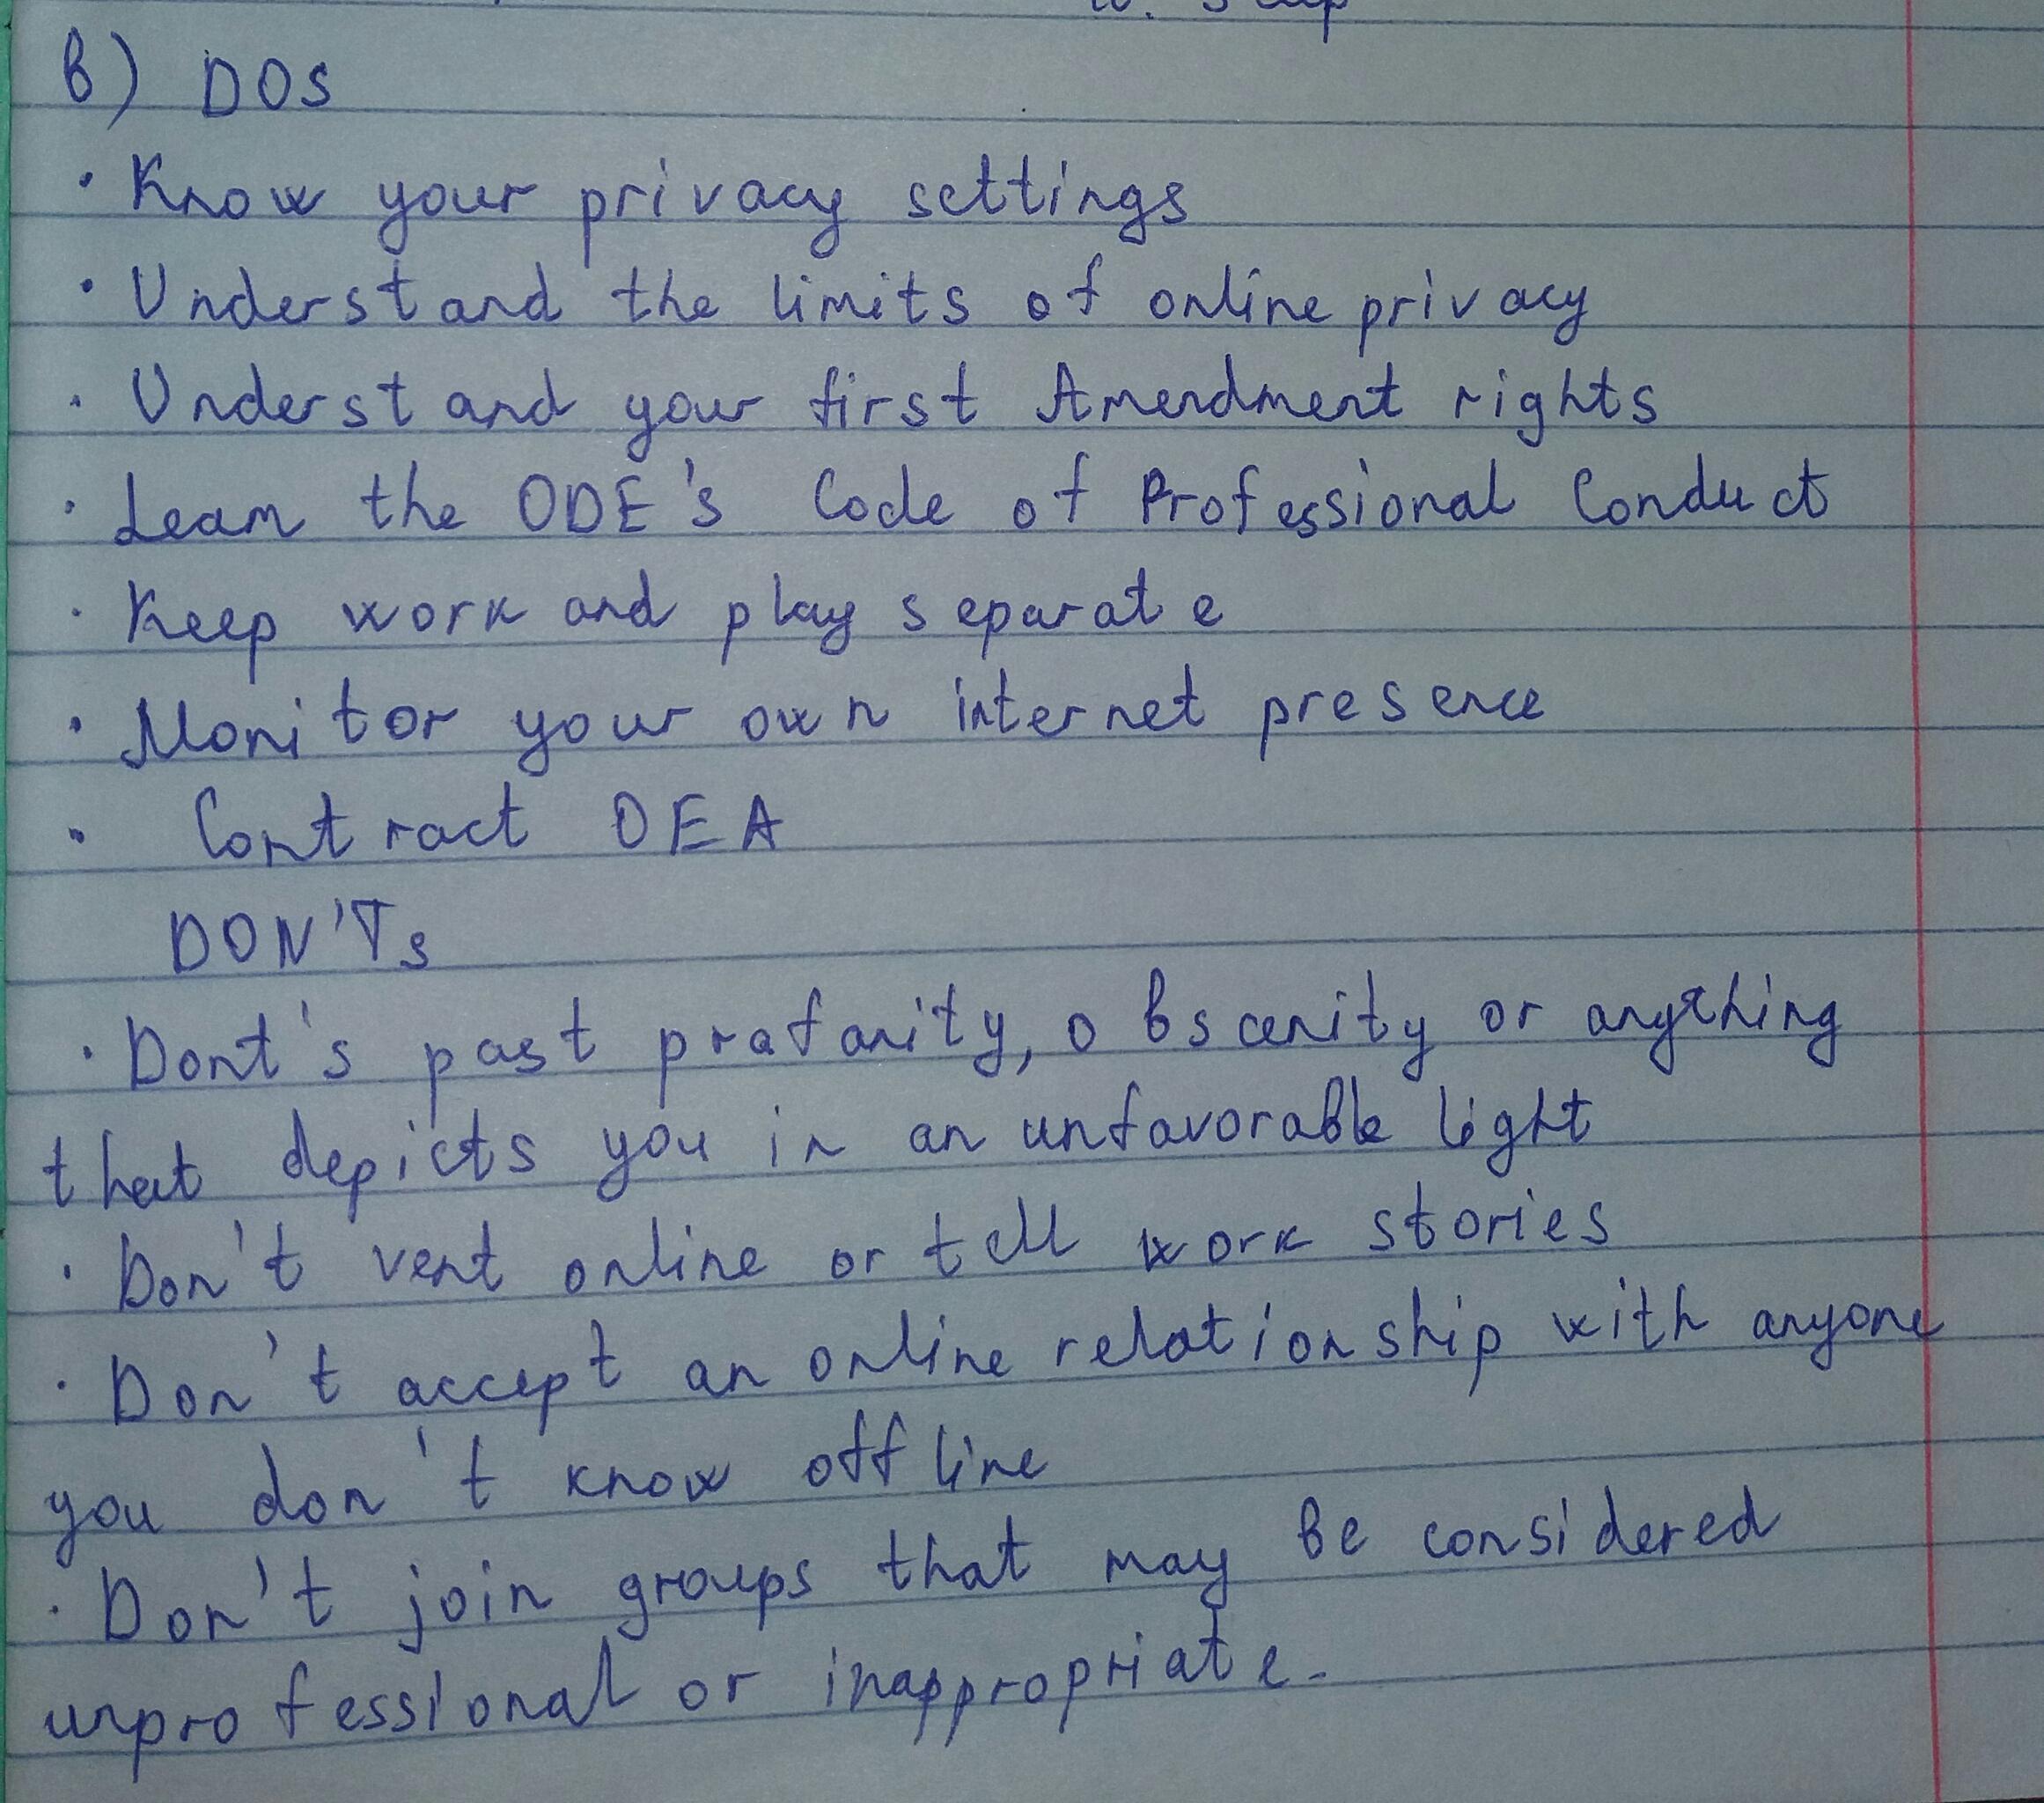 b) DOS
• Know your privacy settings
• Understand the limits of online privacy
• Understand your first Amendment rights
• Learn the ODE's Code of Professional Conduct
• Keep work and play separate
• Monitor your own internet presence
• Contract OEA
DON'Ts
• Dont's past prafanity, obscenity or anything
that depicts you in an unfavorable light
• Don't vent online or tell work stories
• Don't accept an online relationship with anyone
you don't know offline
• Don't join groups that may be considered
unprofessional or inappropriate.